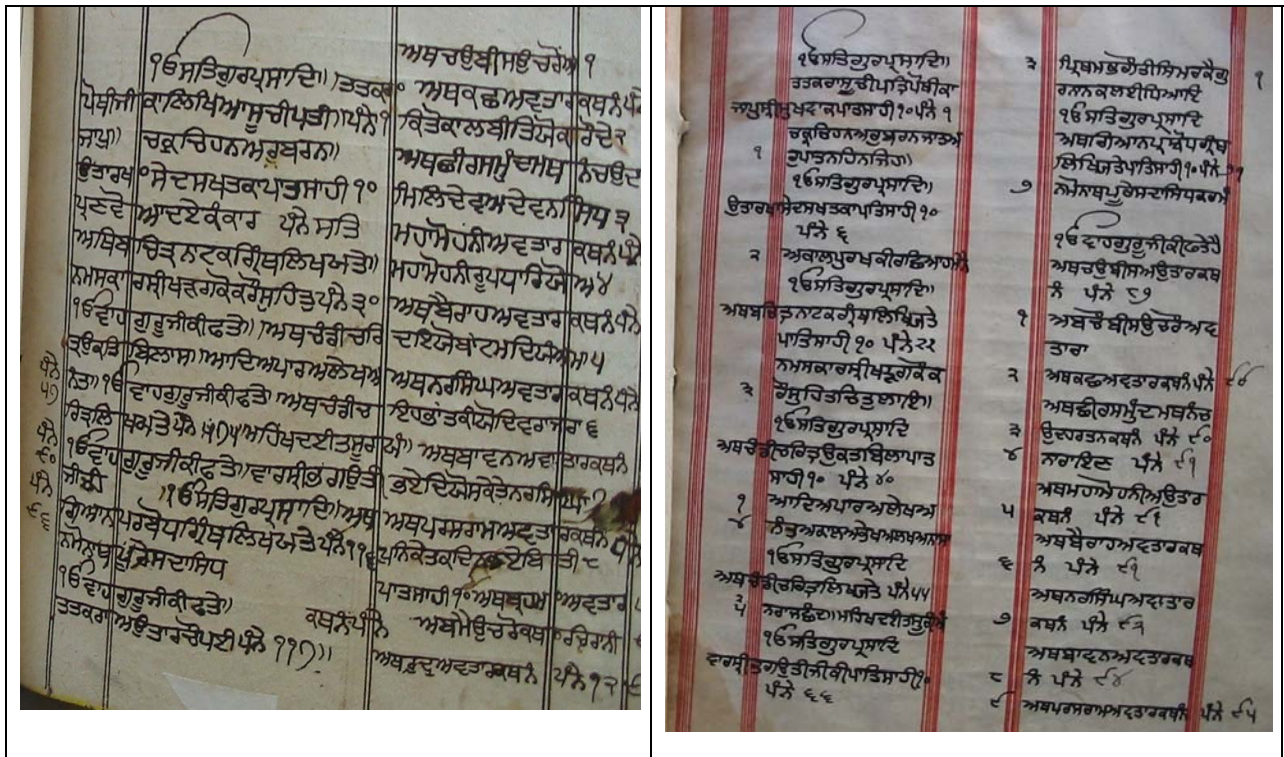 ੴ ਸਤਿਗੁਰਪ੍ਰਸਾਦਿ॥
ਪੋਥੀ ਜੀ ਕਾ ਲਿਖਿਆ ਸੂਚੀ ਪਤ੍ਰੀ॥ ਪੰਨੇ ੧
ਜਾਪੁ॥ ਚਕ੍ਰ ਚਿਹਨ ਅਰੁ ਬਰਨ॥
ਉਤਾਰ ਖਾਸੇ ਦਸਖਤ ਕਾ ਪਾਤਸਾਹੀ ੧੦
ਪ੍ਰਣਵੋ ਆਦ ਏਕੰਕਾਰ ਪੰਨੇ ਸਤਿ
ਅਥ ਬਚਿਤ੍ਰ ਨਟਕ ਗ੍ਰਿੰਥ ਲਿਖਯਤੇ॥
ਨਮਸਕਾਰ ਸ੍ਰੀ ਖੜਗ ਕੋ ਕਰੌ ਸੁ ਹਿਤੁ ਪੰਨੇ ੩੦
ੴ ਵਾਹਗੁਰੂ ਜੀ ਕੀ ਫਤੇ॥ ਅਥ ਚੰਡੀ ਚਰਿ
ਤ੍ਰ ਉਕਤਿ ਬਿਲਾਸ॥ ਆਦਿ ਅਪਾਰ ਅਲੇਖ ਅ
ਪੰਨੇ ੫੭ ਨੰਤ॥ ੴ ਵਾਹਗੁਰੂ ਜੀ ਕੀ ਫਤੇ॥ ਅਥ ਚੰਡੀ ਚ
ਰਿਤ੍ਰ ਲਿਖਯਤੇ ਪੰਨੇ
ਪੰਨੇ ੯੦ ੴ ਵਾਹਗੁਰੂ ਜੀ ਕੀ ਫਤੇ॥ ਵਾਰ ਸ੍ਰੀ ਭਗਉਤੀ
ਪੰਨੇ ੯੬ ਜੀ ਕੀ ੴ ਸਤਿਗੁਰਪ੍ਰਸਾਦਿ॥ ਅਥ
ਗਿਆਨ ਪਰਬੋਧ ਗ੍ਰਿੰਥ ਲਿਖਯਤੇ ਪੰਨੇ ੧੧੬
ਨਮੋ ਨਾਥ ਪੂਰੇ ਸਦਾ ਸਿਧ
ੴ ਵਾਹਗੁਰੂ ਜੀ ਕੀ ਫਤੇ॥
ਤਤਕਰਾ ਅਉਤਾਰ ਚੌਪਈ ਪੰਨੇ ੧੧੭॥
ਅਥ ਚਉਬੀਸ ਉਚਰੋਂ ੧
ਅਥ ਕਛ ਅਵਤਾਰ ਕਥਨੰ ਪੰਨੇ
ਕਿਤੋ ਕਾਲ ਬੀਤਿਯੋ ੨
ਅਥ ਛੀਰ ਸਮੁੰਦ੍ਰ ਮਥਨਿ ਚਉਦ
ਮਿਲਿ ਦੇਵ ਅਦੇਵਨ ਸਿੰਧ ੩
ਮਹਾਮੋਹਨੀ ਅਵਤਾਰ ਕਥਨੰ ਪੰਨੇ
ਮਹਾ ਮੋਹਨੀ ਰੂਪ ਧਾਰਿਯੋ ਅ ੪
ਅਥ ਬੈਰਾਹ ਅਵਤਾਰ ਕਥਨੰ ਪੰਨੇ
ਦਇਯੋ ਬਾਂਟ ਮਦਿਯੰ ੫
ਅਥ ਨਰਸਿੰਘ ਅਵਤਾਰ ਕਥਨੰ ਪੰਨੇ
ਇਹ ਭਾਂਤ ਕੀਯੋ ਦਿਵਰਾਜ ਰਾ ੬
ਅਥ ਬਾਵਨ ਅਵਤਾਰ ਕਥਨੰ
ਭਏ ਦਿਯੋਸ ਕੇਤੇ ਨਰਸਿੰਘ
ਅਥ ਪਰਸਰਾਮ ਅਵਤਾਰ ਕਥਨੰ ਪੰਨੇ
ਪੁਨਿ ਕੇਤਕ ਦਿ ਭਏ ਬਿਤੀ ੮
ਪਾਤਸਾਹੀ ੧੦ ਅਥ ਬ੍ਰਹਮ ਅਵਤਾਰ
ਕਥਨੰ ਪੰਨੇ
ਅਥ ਰੁਦ੍ਰ ਅਵਤਾਰ ਕਥਨੰ ਪੰਨੇ ੧੨
ੴ ਸਤਿਗੁਰਪ੍ਰਸਾਦਿ॥
ਤਤਕਰਾ ਸੂਚੀ ਪਤ੍ਰਿ ਪੋਥੀ ਕਾ
ਜਾਪੁ ਸ੍ਰੀ ਮੁਖਵਾਕ ਪਾਤਸਾਹੀ ੧੦ ਪੰਨੇ ੧
ਚਕ੍ਰ ਚਿਹਨ ਅਰੁ ਬਰਨ ਜਾਤ ਅ
੧ ਰੁ ਪਾਤ ਨਹਿਨ ਜਿਹ॥
ੴ ਸਤਿਗੁਰਪ੍ਰਸਾਦਿ॥
ਉਤਾਰ ਖਾਸੇ ਦਸਖਤ ਕਾ ਪਾਤਿਸਾਹੀ ੧੦
ਪੰਨੇ ੬
੨ ਅਕਾਲ ਪੁਰਖ ਕੀ ਰਛਿਆ ਹਮਨੈ
ੴ ਸਤਿਗੁਰਪ੍ਰਸਾਦਿ॥
ਅਥ ਬਚਿਤ੍ਰ ਨਟਕ ਗ੍ਰੰਥ ਲਿਖਿਯਤੇ
ਪਾਤਿਸਾਹੀ ੧੦ ਪੰਨੇ ੨੨
ਨਮਸਕਾਰ ਸ੍ਰੀ ਖੜਗ ਕੋ ਕ
੩ ਰੌ ਸੁ ਹਿਤ ਚਿਤੁ ਲਾਇ॥
ੴ ਸਤਿਗੁਰਪ੍ਰਸਾਦਿ
ਅਥ ਚੰਡੀ ਚਰਿਤ੍ਰ ਉਕਤ ਬਿਲਾ ਪਾਤ
ਸਾਹੀ ੧੦ ਪੰਨੇ ੪੦
੧ ਆਦਿ ਅਪਾਰ ਅਲੇਖ ਅ
੪ ਨੰਤੁ ਅਕਾਲ ਅਭੇਖ ਅਲਖ ਅਨਾਸ
ੴ ਸਤਿਗੁਰਪ੍ਰਸਾਦਿ
ਅਥ ਚੰਡੀ ਚਰਿਤ੍ਰ ਲਿਖਿਯਤੇ ਪੰਨੇ ੫੫
੫ ਨਰਾਜ ਛੰਦ॥ ਮਹਿਖ ਦਈਤ ਸੂਰਯੰ
ੴ ਸਤਿਗੁਰਪ੍ਰਸਾਦਿ
ਵਾਰ ਸ੍ਰੀ ਭਗਉਤੀ ਜੀ ਕੀ ਪਾਤਿਸਾਹੀ ੧੦
ਪੰਨੇ ੬੬
੬ ਪ੍ਰਿਥਮ ਭਗੌਤੀ ਸਿਮਰ ਕੈ ਗੁ
ਰ ਨਾਨਕ ਲਈ ਧਿਆਇ
ੴ ਸਤਿਗੁਰਪ੍ਰਸਾਦਿ
ਅਥ ਗਿਆਨ ਪ੍ਰਬੋਧ ਗ੍ਰਿੰਥ
ਲਿਖਿਯਤੇ ਪਾਤਿਸਾਹੀ ੧੦ ਪੰਨੇ
੭ ਨਮੋ ਨਾਥ ਪੂਰੇ ਸਦਾ ਸਿਧ ਕਰਮੰ
ੴ ਵਾਹਗੁਰੂ ਜੀ ਕੀ ਫਤੇ ਹੈ
ਅਥ ਚਉਬੀਸ ਅਉਤਾਰ ਕਥ
ਨੰ ਪੰਨੇ ੮੭
੧ ਅਬ ਚੌਬੀਸ ਉਚਰੌ ਅਵ
ਤਾਰਾ
੨ ਅਥ ਕਛ ਅਵਤਾਰ ਕਥਨੰ ਪੰਨੇ
ਅਥ ਛੀਰ ਸਮੁੰਦ੍ਰ ਮਥਨੰ ਚ
੩ ਉਦਹ ਰਤਨ ਕਥਨੰ ਪੰਨੇ ੯੦
੪ ਨਰਾਇਣ ਪੰਨੇ ੯੧
ਅਥ ਮਹਾਮੋਹਨੀ ਅਉਤਾਰ
੫ ਕਥਨੰ ਪੰਨੇ ੯੧
ਅਥ ਬੈਰਾਹ ਅਵਤਾਰ ਕਥ
੬ ਨੰ ਪੰਨੇ ੯੧
ਅਥ ਨਰਸਿੰਘ ਅਵਤਾਰ
੭ ਕਥਨੰ ਪੰਨੇ ੯੩
ਅਥ ਬਾਵਨ ਅਵਤਾਰ ਕਥ
੮ ਨੰ ਪੰਨੇ ੯੪
੯ ਅਥ ਪਰਸਰਾਮ ਅਵਤਾਰ ਕਥਨੰ ਪੰਨੇ ੯੫